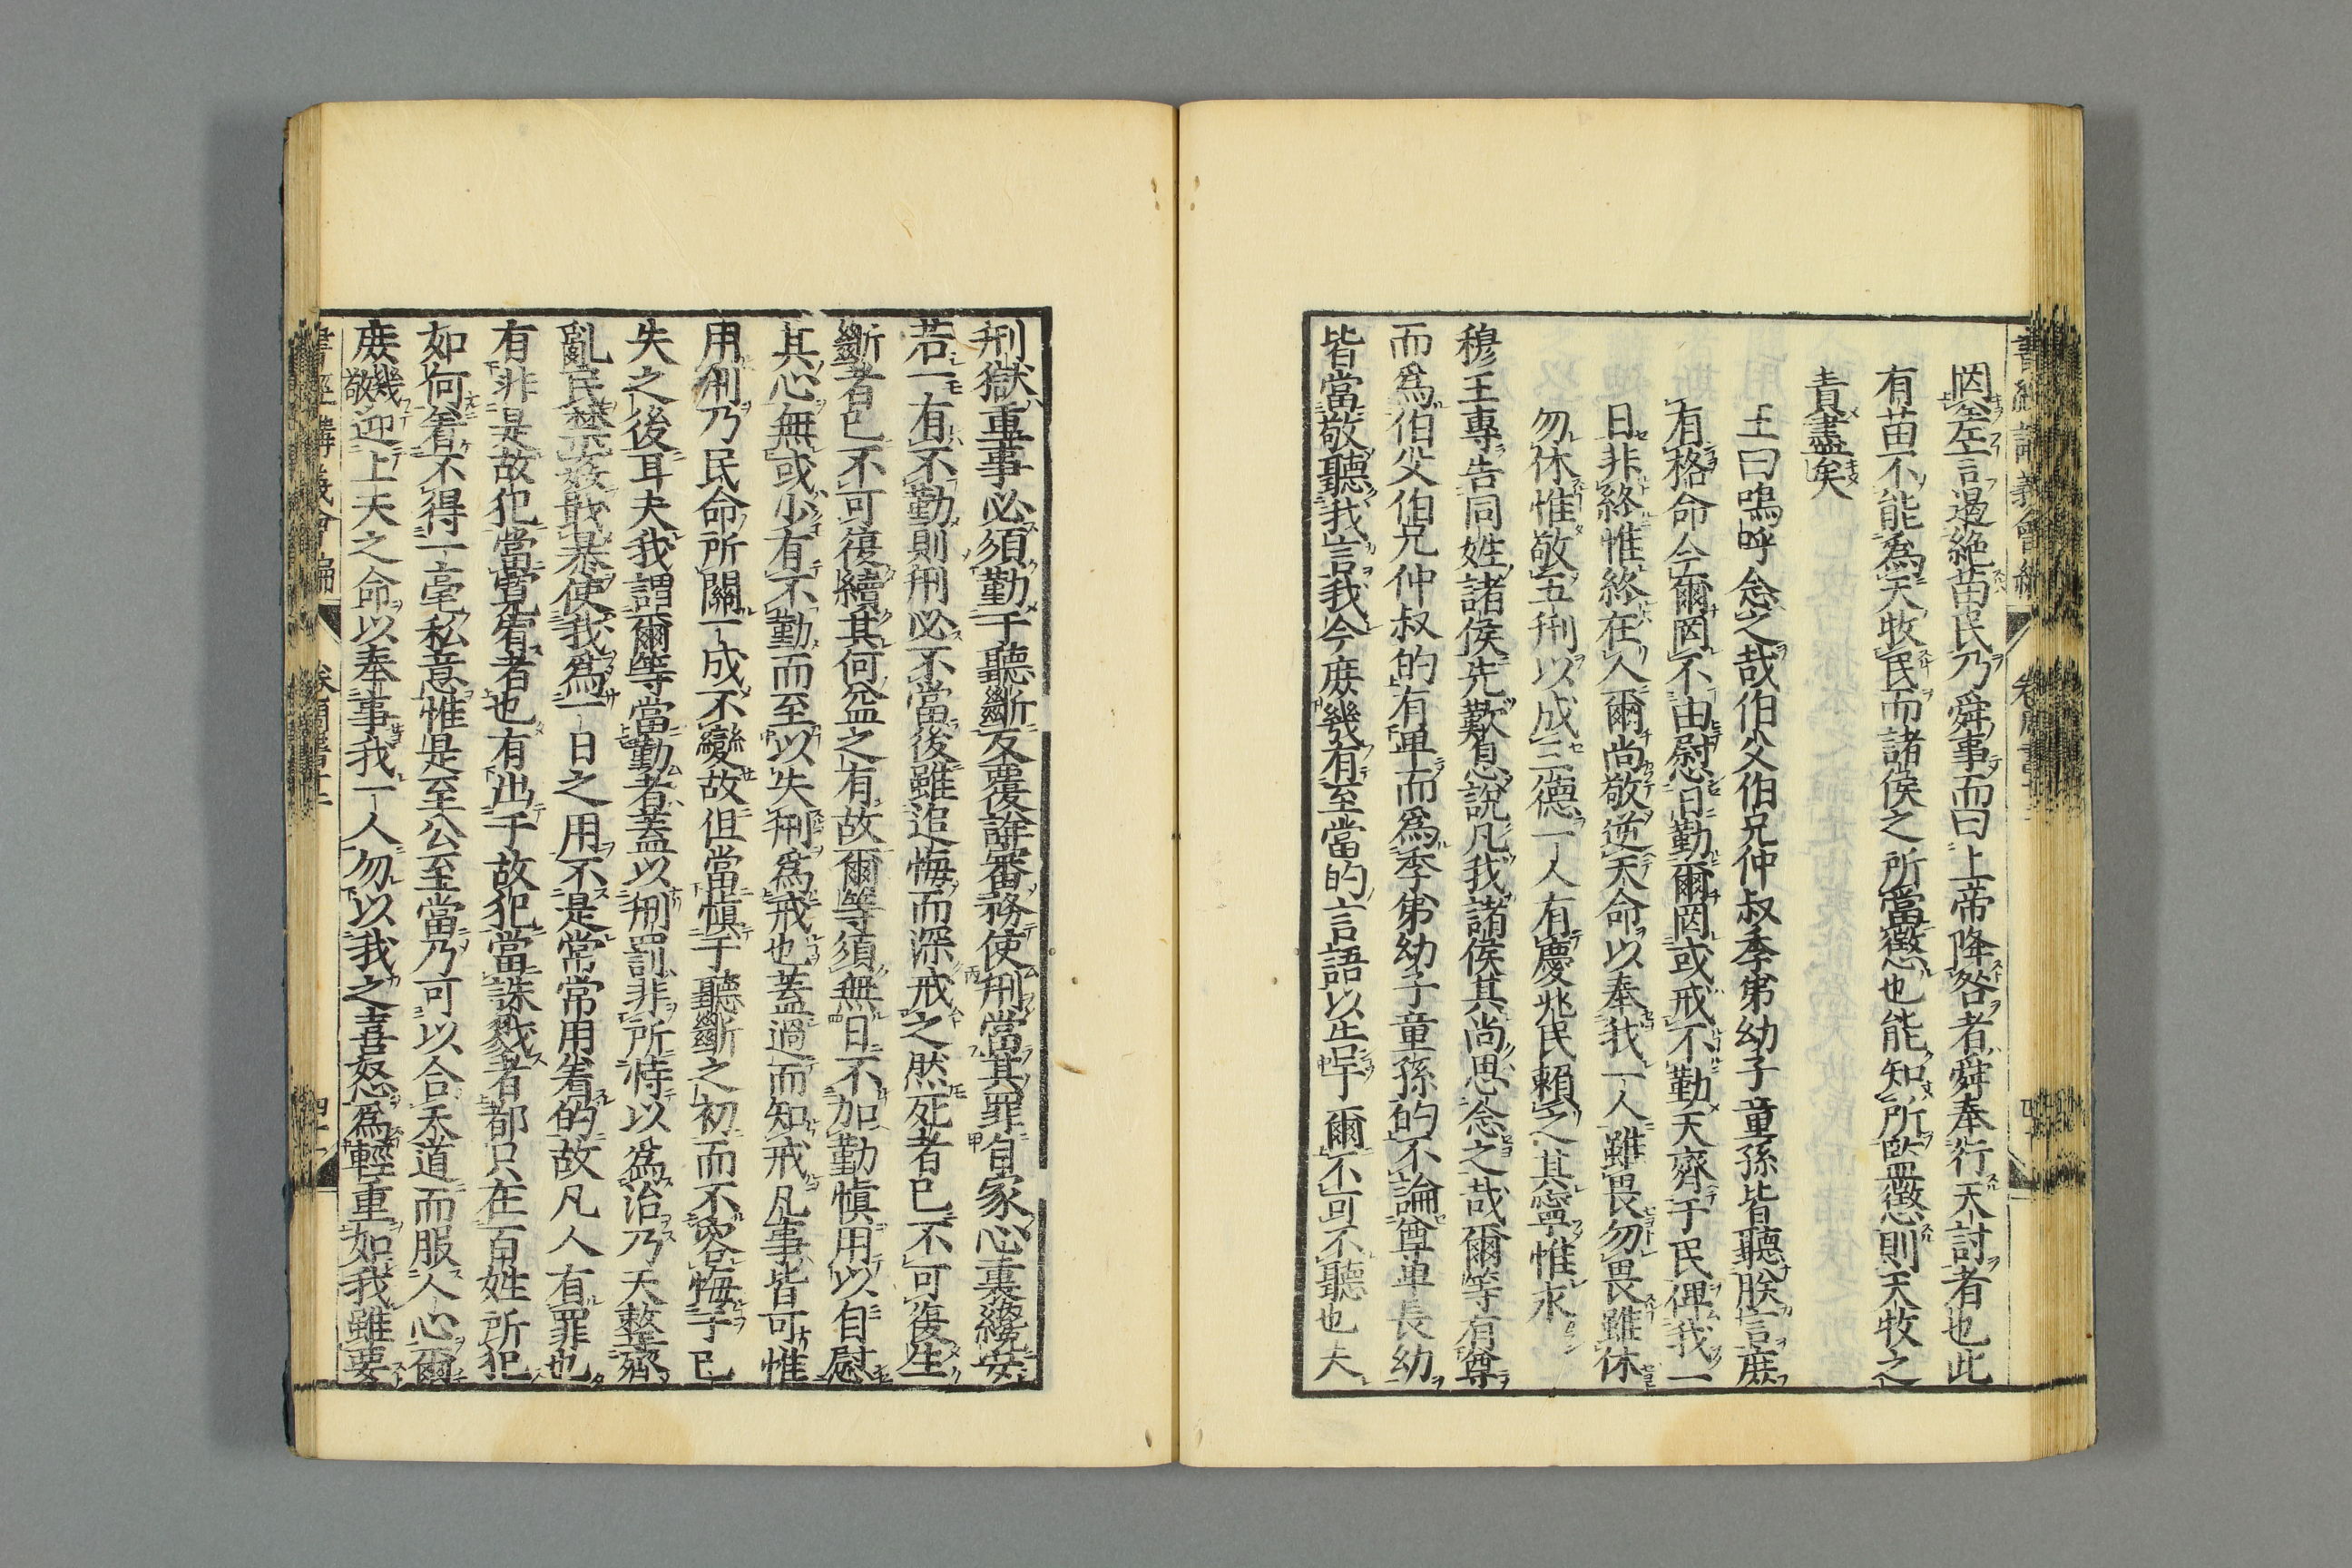 罔差言遏絶苗民乃舜事而曰上帝降咎者舜奉行天討者也此
有苗不能爲天牧民而諸侯之所當懲也能知所監懲則天牧之
責盡矣
王曰嗚呼念之哉伯父伯兄仲叔季弟幼子童孫皆聽朕言庶
有格命今爾罔不由慰日勤爾罔或戒不勤天齊于民俾我一
日非終惟終在人爾尚敬逆天命以奉我一人雖畏勿畏雖休
勿休惟敬五刑以成三德一人有慶兆民賴之其寧惟永
穆王專告同姓諸侯先歎息說凡我諸侯其尚思念之哉爾等有尊
而爲伯父伯兄仲叔的有卑而爲季弟幼子童孫的不論尊卑長幼
皆當敬聽我言我今庶幾有至當的言語以告乎爾不可不聽也夫
刑獄重事必須勤于聽斷反覆詳審務使刑當其罪自家心裏纔安
若一有不勤則刑必不當後雖追悔而深戒之然死者已不可復生
斷者已不可復續其何益之有故爾等須無日不加勤愼用以自慰
其心無或少有不勤而至以失刑爲戒也蓋過而知戒凡事皆可惟
用刑乃民命所關一成不變故但當愼于聽斷之初而不容悔于已
失之後耳夫我謂爾等當勤者蓋以刑罰非所恃以爲治乃天整齊
亂民禁姦戢暴使我爲一日之用不是常常用着的故凡人有罪也
有非是故犯當寬宥者也有出于故犯當誅戮者都只在百姓所犯
如何着不得一毫私意惟是至公至當乃可以合天道而服人心爾
庶幾敬迎上天之命以奉事我一人勿以我之喜怒爲輕重如我雖要
書經講義會編 卷